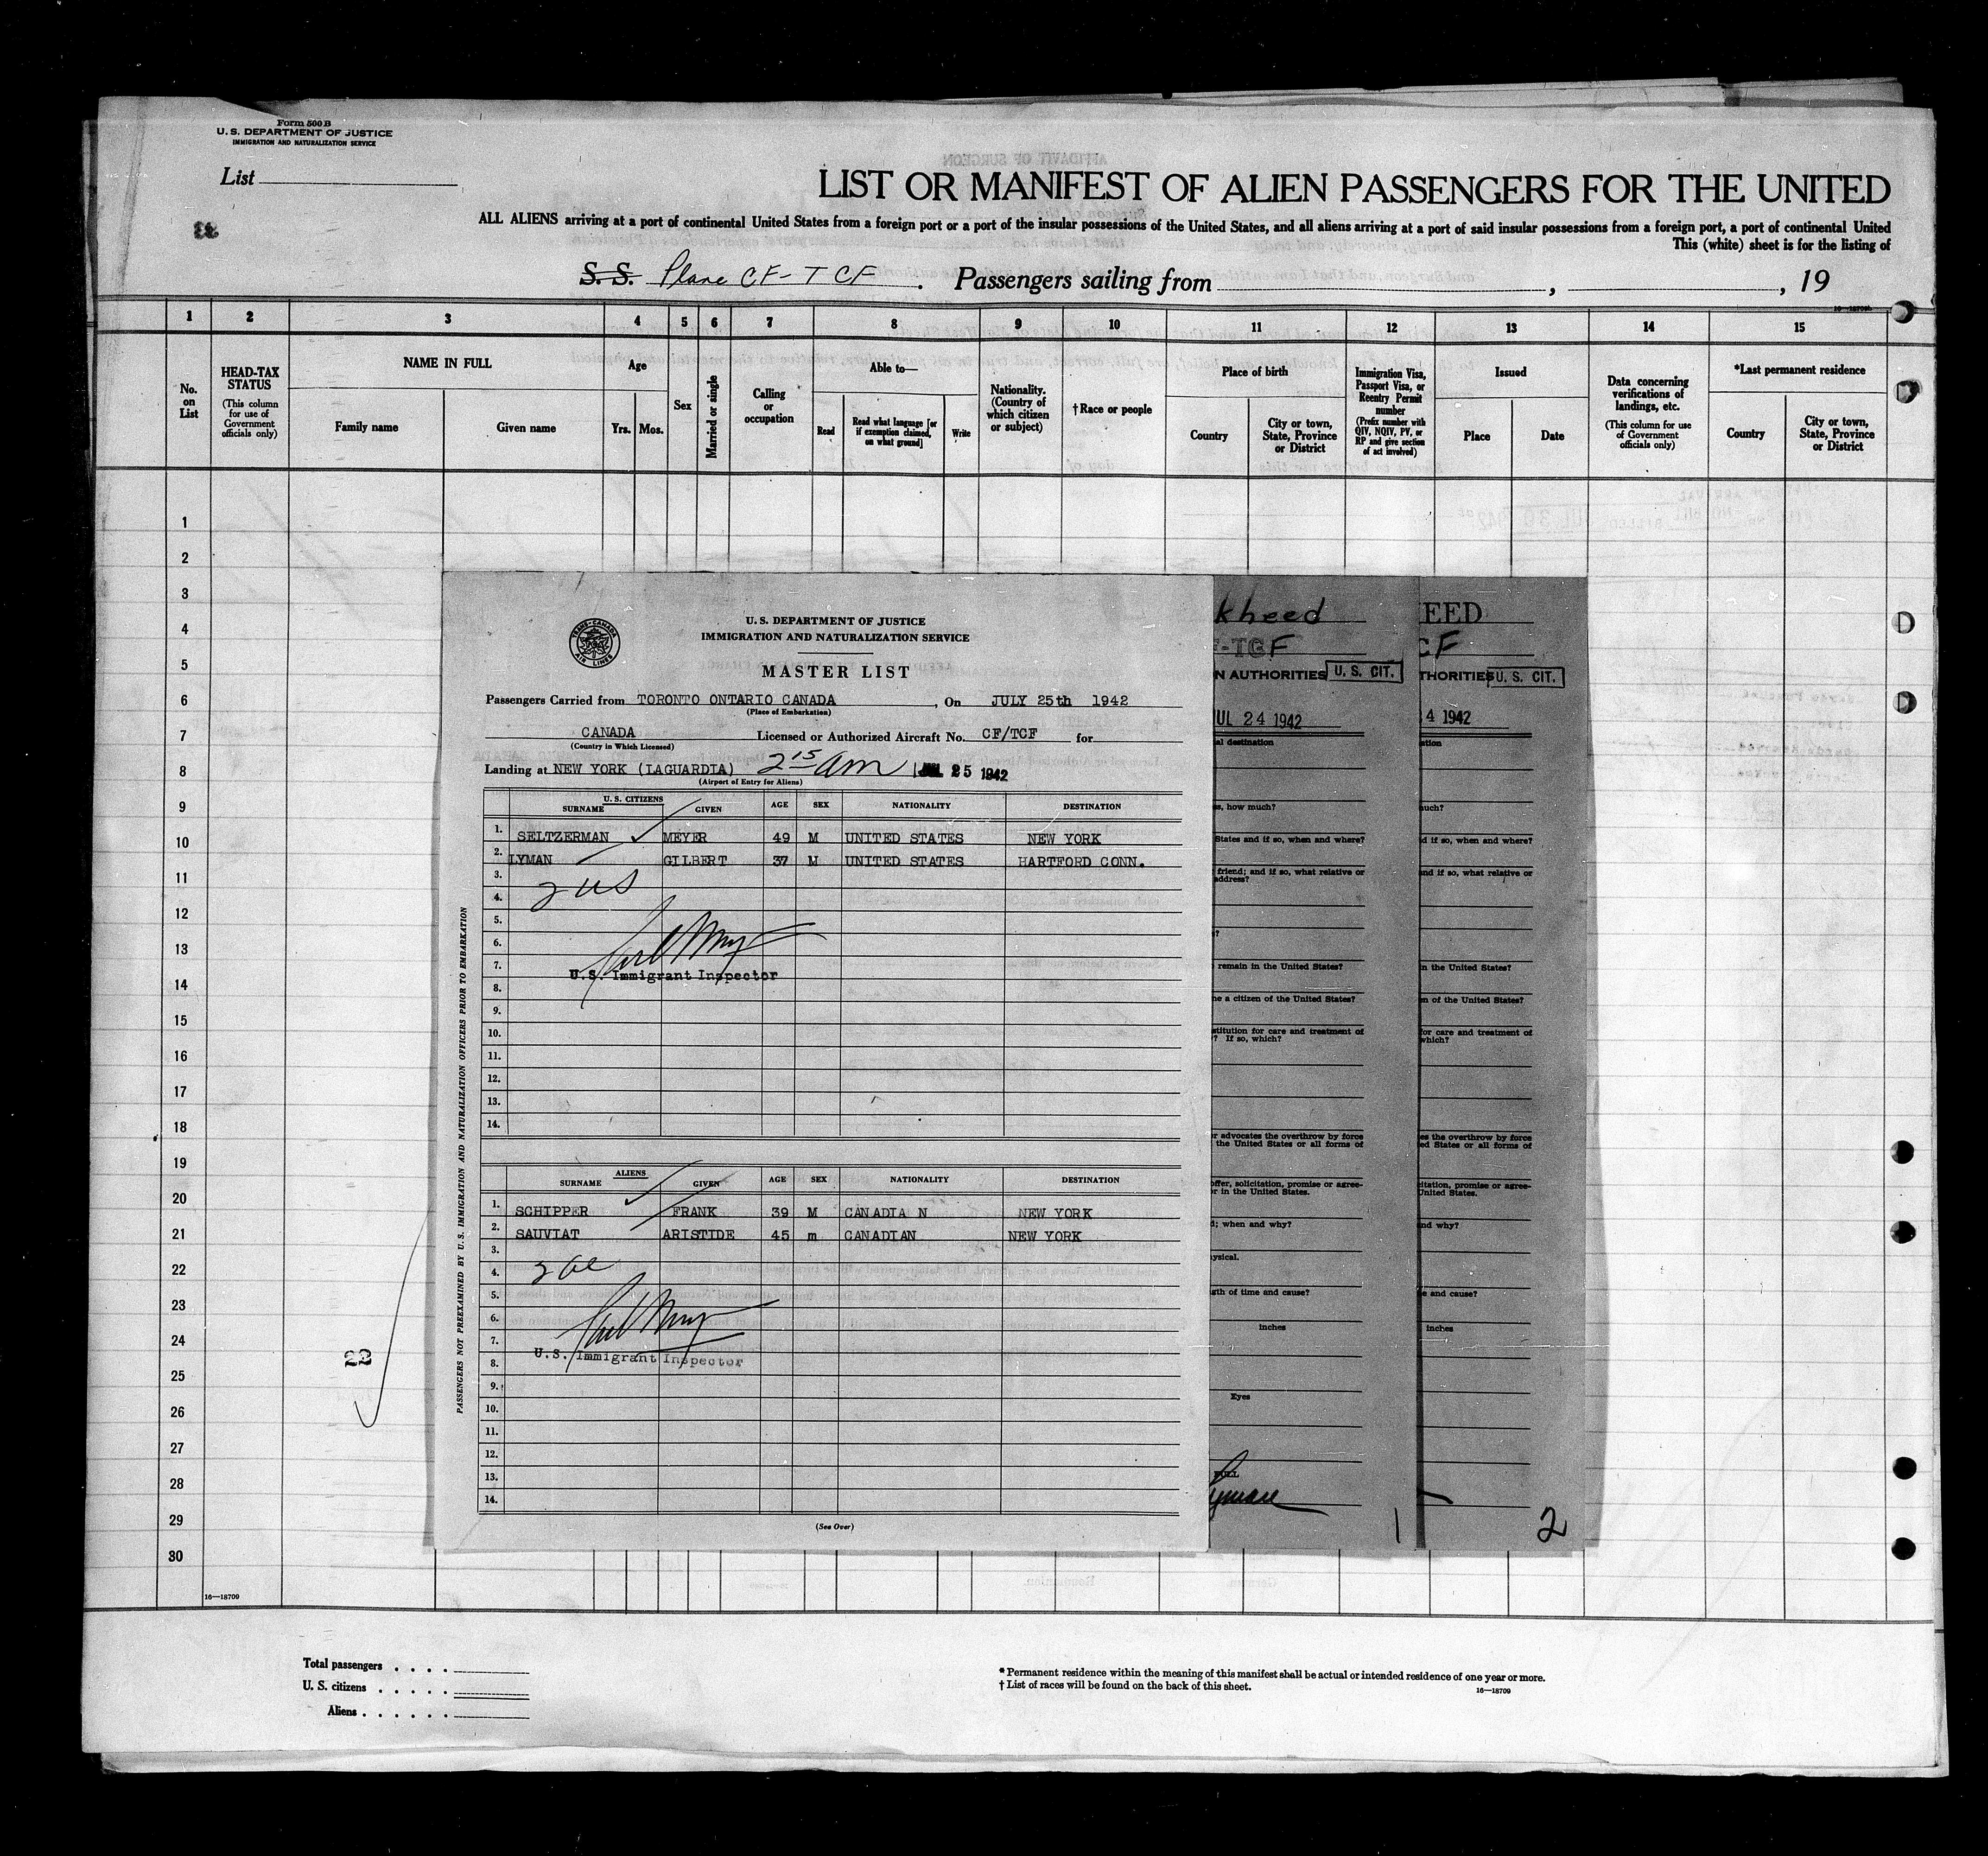 Form 500 B
U. S. DEPARTMENT OF JUSTICE
IMMIGRATION AND NATURALIZATION SERVICE
List
LIST OR MANIFEST OF ALIEN PASSENGERS FOR THE UNITED
ALL ALIENS arriving at a port of continental United States from a foreign port or a port of the insular possessions of the United States, and all aliens arriving at a port of said insular possessions from a foreign port, a port of continental United
This (white) sheet is for the listing of
S. S. Plane CF-TCF. Passengers sailing from , , 19
16—18709b
1 2 3 4 5 6 7 8 9 10 11 12 13 14 15
No. on List
HEAD-TAX STATUS
(This column for use of Government officials only)
NAME IN FULL
Family name
Given name
Age
Yrs. Mos.
Sex
Married or single
Calling or occupation
Able to—
Read
Read what language [or if exemption claimed, on what ground]
Write
Nationality. (Country of which citizen or subject)
†Race or people
Place of birth
Country
City or town, State, Province or District
Immigration Visa, Passport Visa, or Reentry Permit number
(Prefix number with QIV, NQIV, PV, or RP and give section of act involved)
Issued
Place
Date
Data concerning verifications of landings, etc.
(This column for use of Government officials only)
*Last permanent residence
Country
City or town, State, Province or District
1
2
3
4
5
6
7
8
9
10
11
12
13
14
15
16
17
18
19
20
21
22
23
24
25
26
27
28
29
30
22
16—18709
TRANS-CANADA AIR LINES
U. S. DEPARTMENT OF JUSTICE
IMMIGRATION AND NATURALIZATION SERVICE
MASTER LIST
Passengers Carried from TORONTO ONTARIO CANADA , On JULY 25th 1942
(Place of Embarkation)
CANADA Licensed or Authorized Aircraft No. CF/TCF for
(Country in Which Licensed)
Landing at NEW YORK (LAGUARDIA) 2 15 am JUL 25 1942
(Airport of Entry for Aliens)
U. S. CITIZENS
SURNAME GIVEN AGE SEX NATIONALITY DESTINATION
1. SELTZERMAN MEYER 49 M UNITED STATES NEW YORK
2. LYMAN GILBERT 37 M UNITED STATES HARTFORD CONN.
3.
4. 2 US
5.
6.
7. U.S. Immigrant Inspector
8.
9.
10.
11.
12.
13.
14.
ALIENS
SURNAME GIVEN AGE SEX NATIONALITY DESTINATION
1. SCHIPPER FRANK 39 M CANADIA N NEW YORK
2. SAUVIAT ARISTIDE 45 m CANADIAN NEW YORK
3.
4.
5.
6.
7.
8. U.S. Immigrant Inspector
9.
10.
11.
12.
13.
14.
(See Over)
PASSENGERS NOT PREEXAMINED BY U.S. IMMIGRATION AND NATURALIZATION OFFICERS PRIOR TO EMBARKATION
kheed
-TCF
N AUTHORITIES U. S. CIT.
JUL 24 1942
al destination
s, how much?
States and if so, when and where?
friend; and if so, what relative or
address?
?
remain in the United States?
ne a citizen of the United States?
stitution for care and treatment of
? If so, which?
r advocates the overthrow by force
the United States or all forms of
offer, solicitation, promise or agree-
r in the United States.
d; when and why?
ysical.
gth of time and cause?
inches
Eyes
FULL
Lyman
1
EED
CF
THORITIES U. S. CIT.
4 1942
ation
much?
d if so, when and where?
nd if so, what relative or
n the United States?
n of the United States?
for care and treatment of
which?
es the overthrow by force
ted States or all forms of
citation, promise or agree-
United States.
nd why?
e and cause?
inches
2
Total passengers . . . .
U. S. citizens . . . . .
Aliens . . . . . .
* Permanent residence within the meaning of this manifest shall be actual or intended residence of one year or more.
† List of races will be found on the back of this sheet.
16—18709